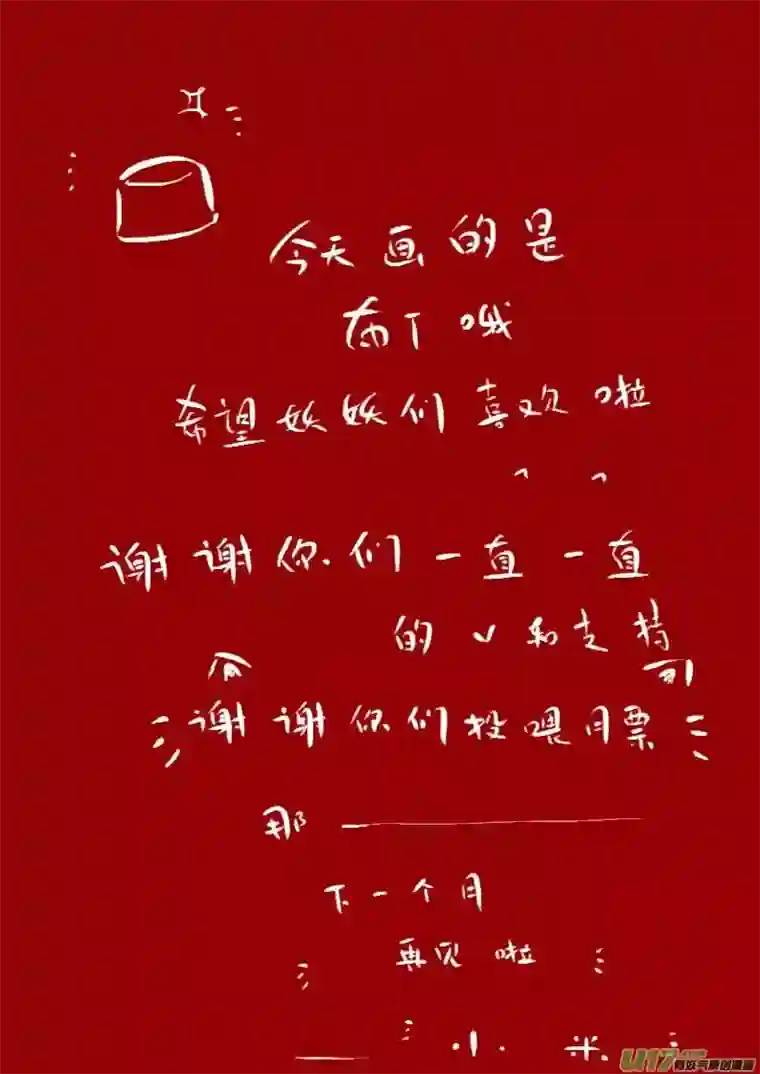 今天画的是
布丁哦
希望妖妖们喜欢啦
谢谢你们一直一直
的 和支持
谢谢你们投喂月票
那
下一个月
再见啦
小米
U17
有妖气原创漫画